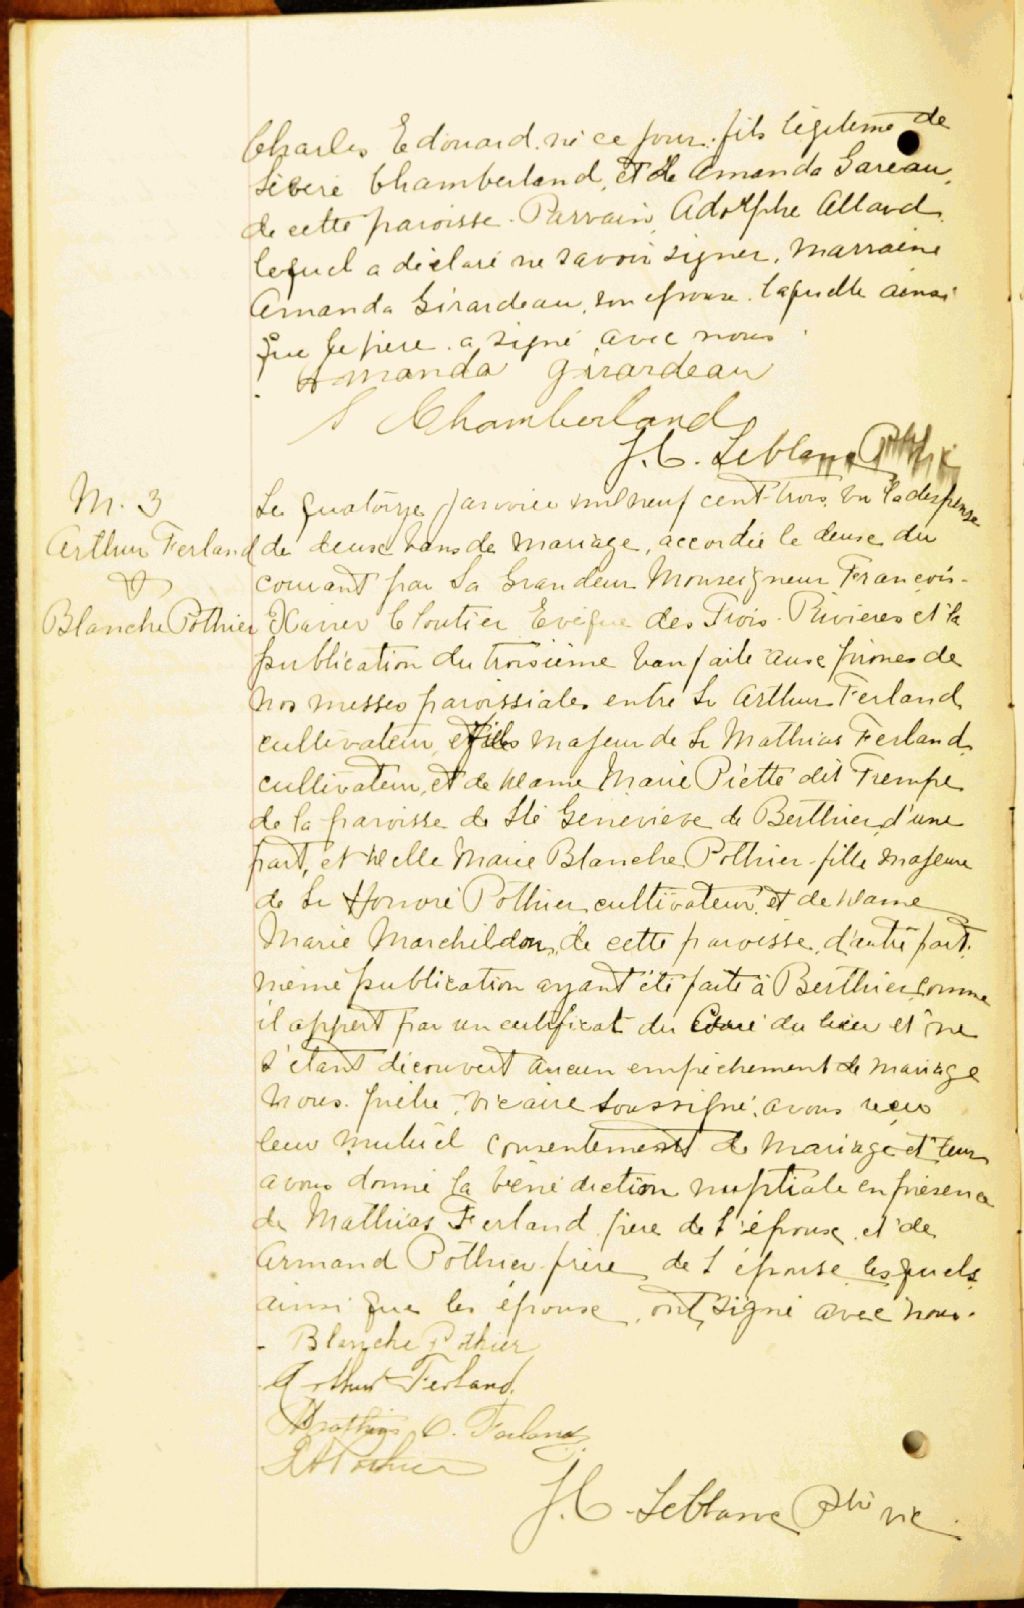 Charles Edouard né ce jour, fils légitime de
Sévère Chamberland, et de Amanda Gareau,
de cette paroisse. Parrain, Adolphe Allard
lequel a déclaré ne savoir signer, marraine
Amanda Girardeau, son épouse laquelle ainsi
que le père a signé avec nous.
Amanda Girardeau
S Chamberland
J. C. Leblanc Ptre
M. 3
Arthur Ferland
&
Blanche Pothier
Le quatorze janvier mil neuf cent trois, vu la dispense
de deux bans de mariage, accordée le deux du
courant par Sa Grandeur Monseigneur François-
Xavier Cloutier Evêque des Trois-Rivières et la
publication du troisième ban faite aux prônes de
nos messes paroissiales entre Sr Arthur Ferland,
cultivateur, fils majeur de Sr Mathias Ferland,
cultivateur, et de Dame Marie Piette dit Trempe
de la paroisse de Ste Geneviève de Berthier, d'une
part, et Delle Marie Blanche Pothier fille majeure
de Sr Honoré Pothier, cultivateur, et de Dame
Marie Marchildon, de cette paroisse, d'autre part,
même publication ayant été faite à Berthier, comme
il appert par un certificat du Curé du lieu et ne
s'étant découvert aucun empêchement de mariage
Nous prêtre, vicaire soussigné, avons reçu
leur mutuel consentement de mariage et leur
avons donné la bénédiction nuptiale en présence
de Mathias Ferland père de l'époux, et de
Armand Pothier frère de l'épouse, lesquels
ainsi que les époux, ont signé avec nous.
Blanche Pothier
Arthur Ferland
Mathias O. Ferland
Pothier
J. C. Leblanc Ptre vic.